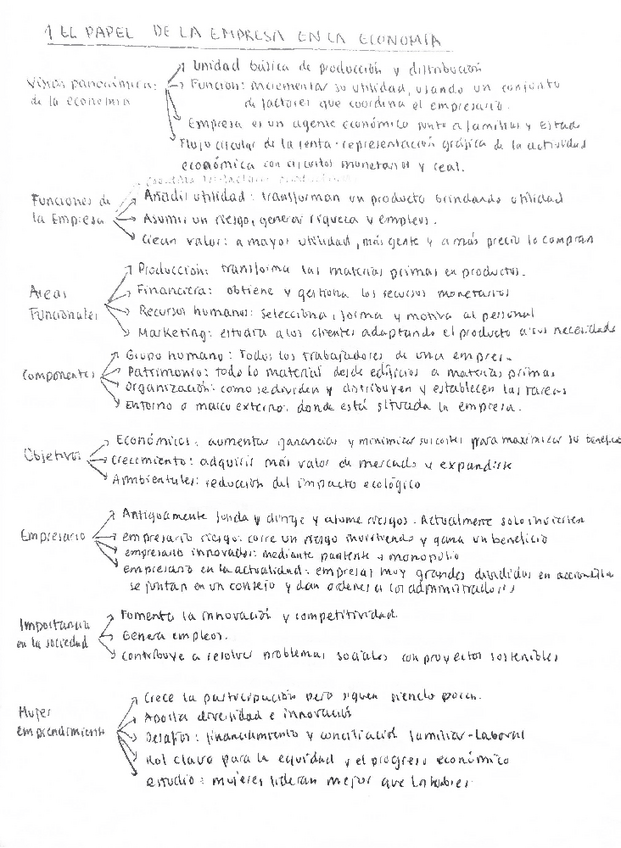 1 EL PAPEL DE LA EMPRESA EN LA ECONOMÍA
Unidad básica de producción y distribución
Visión panorámica: de la economía
Función: incrementar su utilidad, usando un conjunto
de factores que coordina el empresario.
Empresa es un agente económico junto a familias y Estado
Flujo circular de la renta: representación gráfica de la actividad
económica con circuitos monetarios y real.
Funciones de la Empresa
Añadir utilidad: transforman un producto brindando utilidad
Asumir un riesgo, generar riqueza y empleos.
Crean valor: a mayor utilidad, más gente y a más precio lo compran
Areas Funcionales
Producción: transforma las materias primas en productos.
Financiera: obtiene y gestiona los recursos monetarios
Recursos humanos: selecciona, forma y motiva al personal
Marketing: estudia a los clientes adaptando el producto a sus necesidades
Componentes
Grupo humano: Todos los trabajadores de una empresa
Patrimonio: todo lo material desde edificios a materias primas
Organización: como se dividen y distribuyen y establecen las tareas
Entorno o marco externo: donde está situada la empresa.
Objetivos
Económicos: aumentar ganancias y minimizar sus costes para maximizar su beneficio
Crecimiento: adquirir más valor de mercado y expandirse
Ambientales: reducción del impacto ecológico
Empresario
Antiguamente funda y dirige y asume riesgos. Actualmente solo invierten
empresario riesgo: corre un riesgo invirtiendo y gana un beneficio
empresario innovador: mediante pantente → monopolio
empresario en la actualidad: empresas muy grandes divididos en accionistas
se juntan en un consejo y dan ordenes a los administradores
Importancia en la sociedad
Fomenta la innovación y competitividad.
Genera empleos.
Contribuye a resolver problemas sociales con proyectos sostenibles
Mujer emprendimiento
Crece la participación pero siguen siendo pocas.
Aporta diversidad e innovación
Desafíos: financiamiento y conciliación familiar-laboral
Rol clave para la equidad y el progreso económico
estudio: mujeres lideran mejor que los hombres